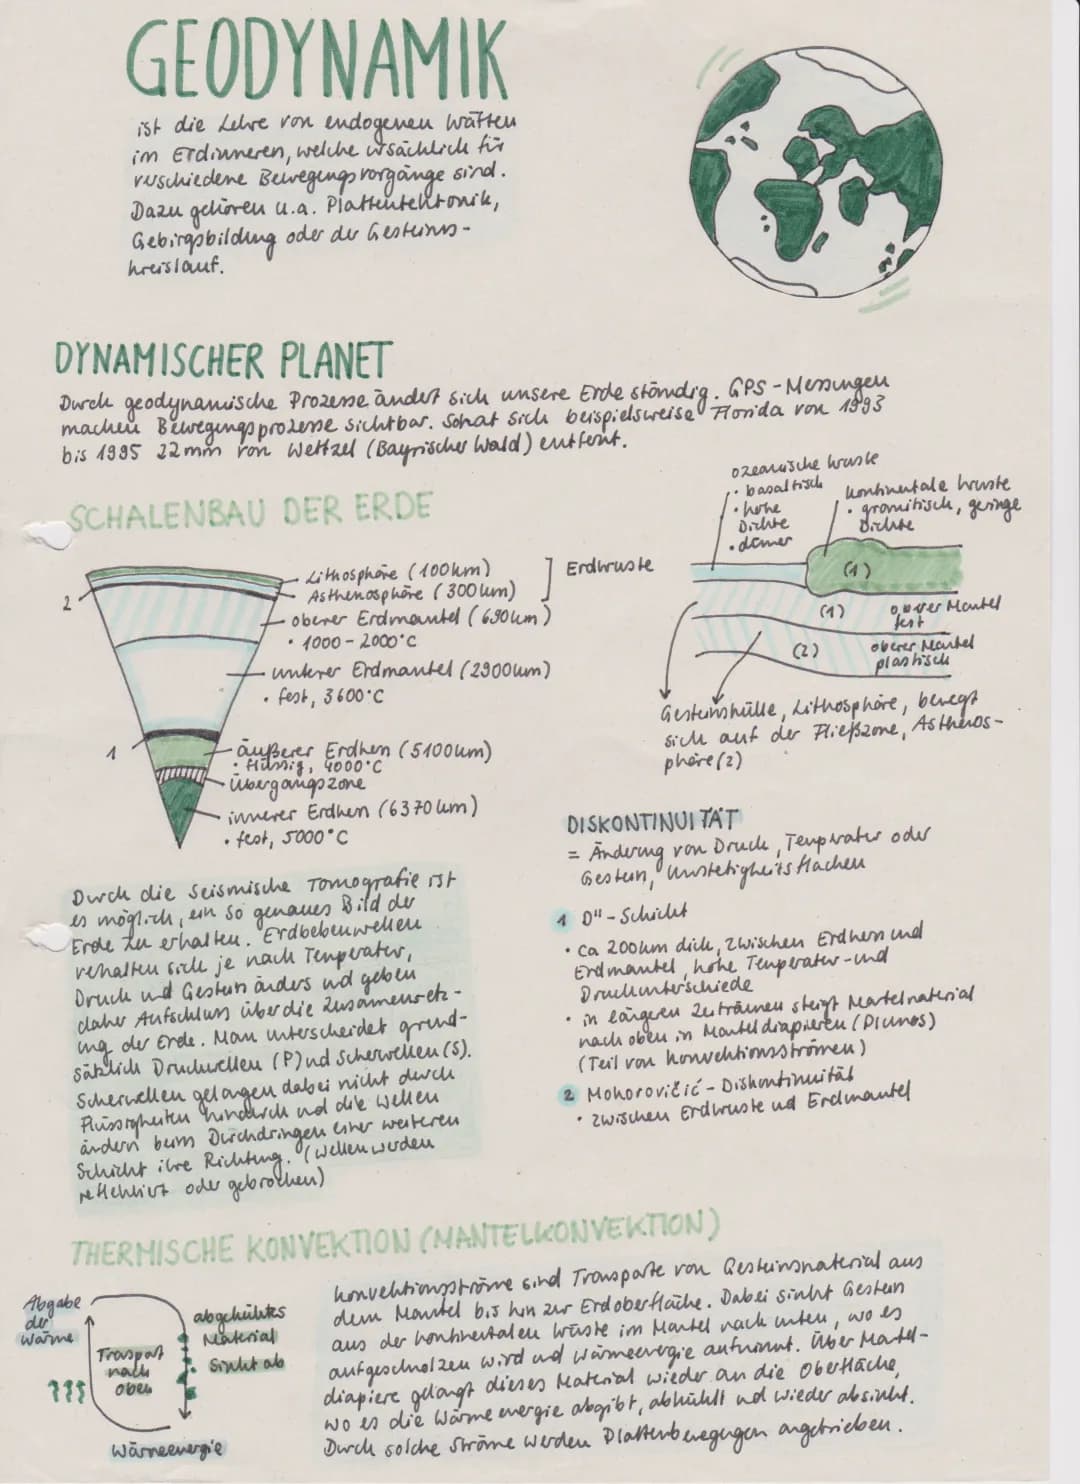 GEODYNAMIK
ist die Lehre von endogenen Kräften
im Erdinneren, welche ursächlich für
verschiedene Bewegungsvorgänge sind.
Dazu gehören u.a. Plattentektonik,
Gebirgsbildung oder der Gesteins-
kreislauf.
DYNAMISCHER PLANET
Durch geodynamische Prozesse ändert sich unsere Erde ständig. GPS-Messungen
machen Bewegungsprozesse sichtbar. So hat sich beispielsweise Florida von 1993
bis 1995 22mm von Wettzel (Bayrischer Wald) entfernt.
SCHALENBAU DER ERDE
2
Lithosphäre (100km)
Asthenosphäre (300km)
Erdkruste
oberer Erdmantel (690km)
• 1000-2000°C
unterer Erdmantel (2900km)
• fest, 3600°C
1
äußerer Erdkern (5100km)
• flüssig, 4000°C
Übergangszone
innerer Erdkern (6370km)
• fest, 5000°C
ozeanische Kruste
• basaltisch
• hohe
Dichte
• dünner
kontinentale Kruste
• granitisch, geringe
Dichte
(1)
(1)
oberer Mantel
fest
(2)
oberer Mantel
plastisch
Gesteinshülle, Lithosphäre, bewegt
sich auf der Fließzone, Asthenos-
phäre (2)
Durch die seismische Tomografie ist
es möglich, ein so genaues Bild der
Erde zu erhalten. Erdbebenwellen
verhalten sich je nach Temperatur,
Druck und Gestein anders und geben
daher Aufschluss über die Zusammensetz-
ung der Erde. Man unterscheidet grund-
sätzlich Druckwellen (P) und Scherwellen (S).
Scherwellen gelangen dabei nicht durch
Flüssigkeiten hindurch und die Wellen
ändern beim Durchdringen einer weiteren
Schicht ihre Richtung. (Wellen werden
reflektiert oder gebrochen)
DISKONTINUITÄT
= Änderung von Druck, Temperatur oder
Gestein, Unstetigkeitsflächen
1 D"-Schicht
• ca 200km dick, zwischen Erdkern und
Erdmantel, hohe Temperatur- und
Druckunterschiede
• in längeren Zeiträumen steigt Mantelmaterial
nach oben in Manteldiapieren (Plumes)
(Teil von Konvektionsströmen)
2 Mohorovičić-Diskontinuität
• zwischen Erdkruste und Erdmantel
THERMISCHE KONVEKTION (MANTELKONVEKTION)
Abgabe
der
Wärme
Transport
nach
oben
abgekühltes
Material
sinkt ab
Wärmeenergie
Konvektionsströme sind Transporte von Gesteinsmaterial aus
dem Mantel bis hin zur Erdoberfläche. Dabei sinkt Gestein
aus der kontinentalen Kruste im Mantel nach unten, wo es
aufgeschmolzen wird und Wärmeenergie aufnimmt. Über Mantel-
diapiere gelangt dieses Material wieder an die Oberfläche,
wo es die Wärmeenergie abgibt, abkühlt und wieder absinkt.
Durch solche Ströme werden Plattenbewegungen angetrieben.